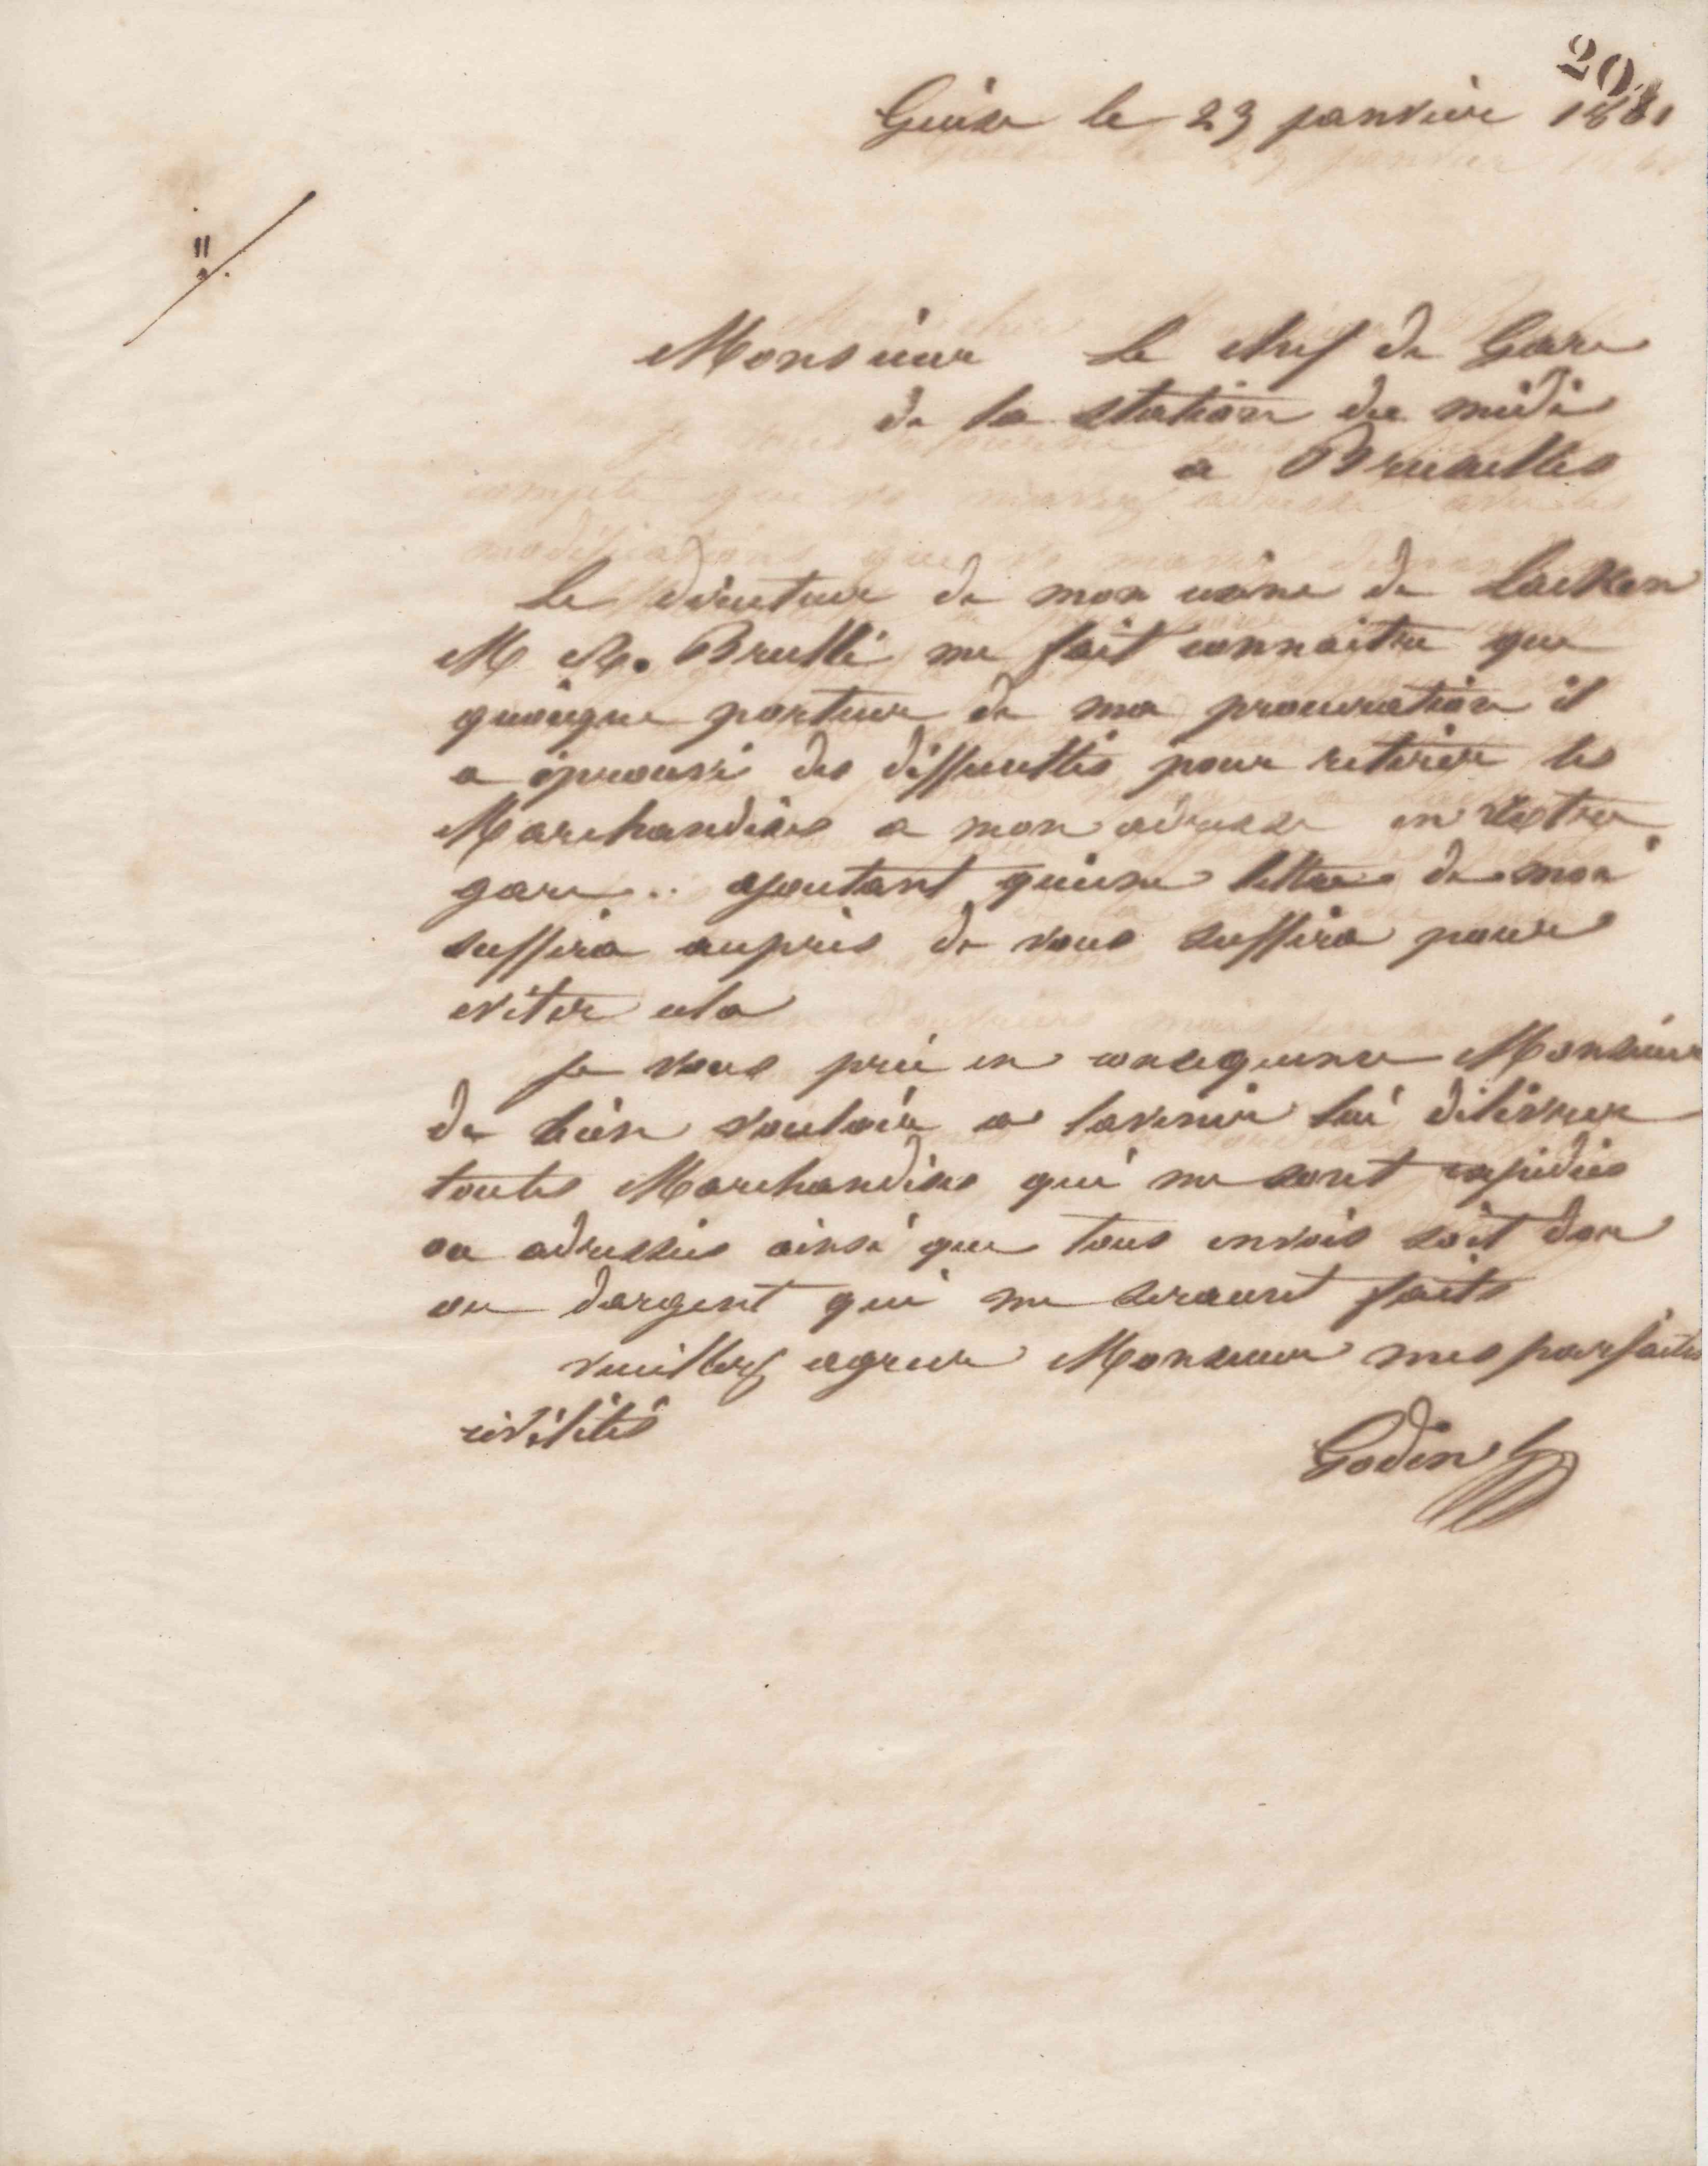 201
Guise le 23 janvier 1861
Monsieur le chef de Gare
de la station du midi
a Bruxelles
Le directeur de mon usine de Laeken
M Brullé me fait connaitre que
quoique porteur de ma procuration il
a éprouvé des difficultés pour retirer les
Marchandises a mon adresse en votre
gare .. ajoutant quune lettre de moi
suffira auprès de vous suffira pour
eviter cela
je vous prie en consequence Monsieur
de bien vouloir a lavenir lui délivrer
toutes Marchandises qui me sont expédiées
ou adressées ainsi que tous envois soit dor
ou dargent qui me seraient faits
veuillez agreer Monsieur mes parfaites
civilités
Godin